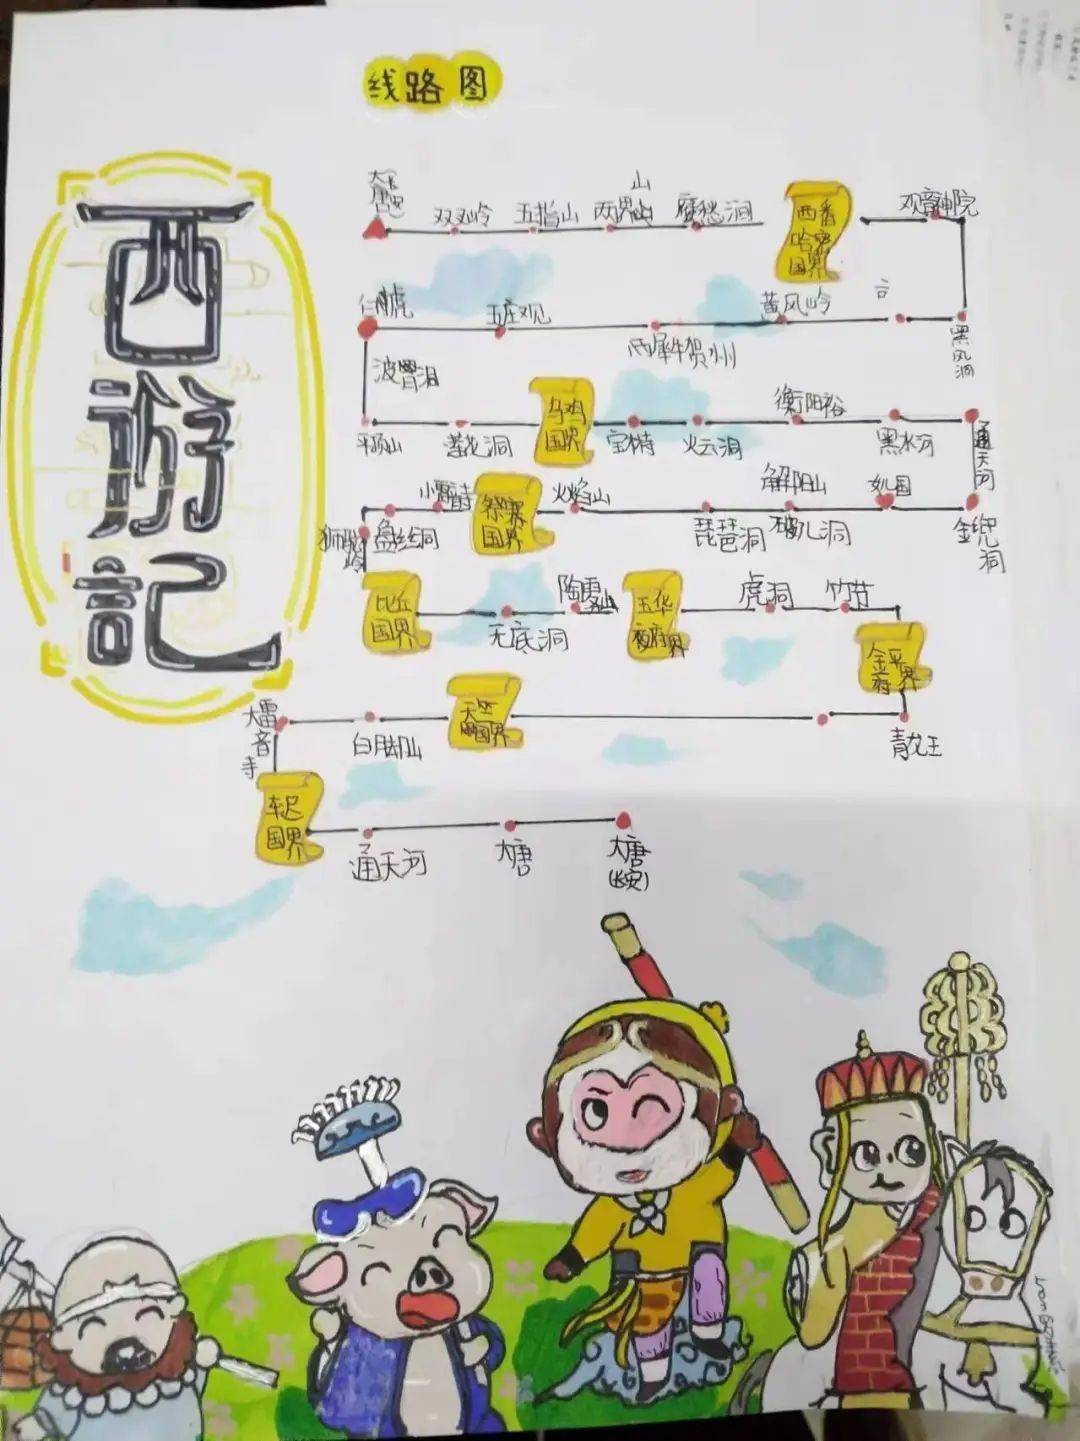 线路图
西游记
双叉岭
五指山
两界山
山
鹰愁涧
西番
哈密
国界
观音禅院
五庄观
西犀牛贺州
黄风岭
黑风洞
波月洞
平顶山
莲花洞
乌鸡
国界
宝林寺
火云洞
衡阳裕
黑水河
通天河
狮驼岭
盘丝洞
小雷音寺
祭赛
国界
火焰山
琵琶洞
解阳山
破儿洞
金兜洞
比丘
国界
无底洞
玉华
虎洞
竹节
金平
府界
大雷音寺
天竺
国界
青龙王
车迟
国界
通天河
大唐
大唐
(长安)